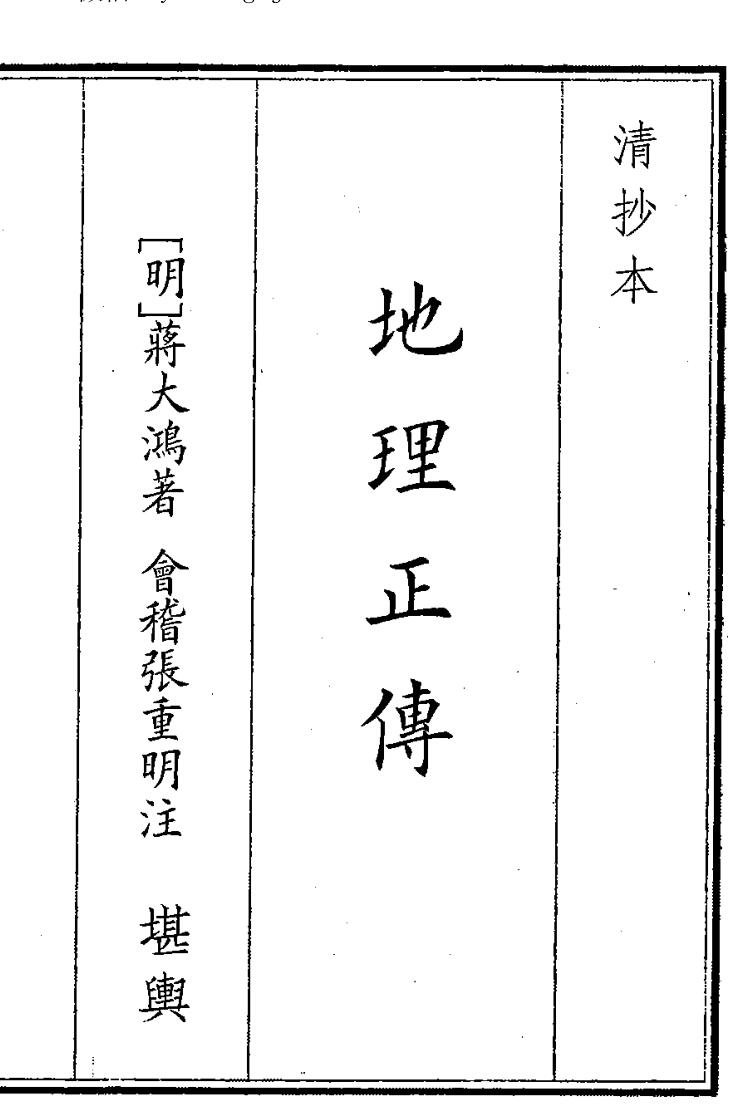 清抄本
地理正傳
[明]蔣大鴻著 會稽張重明注 堪輿